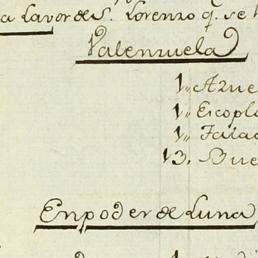 a Lavor de S.n Lorenzo q.e se
Valenzuela
1,, Azue
1,, Escopl
1,, Falac
13,, Bue
En poder de Luna